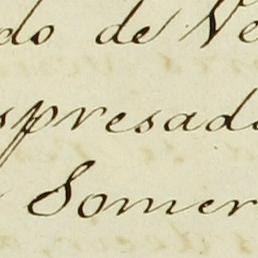 do de Ve
spresad
Somer